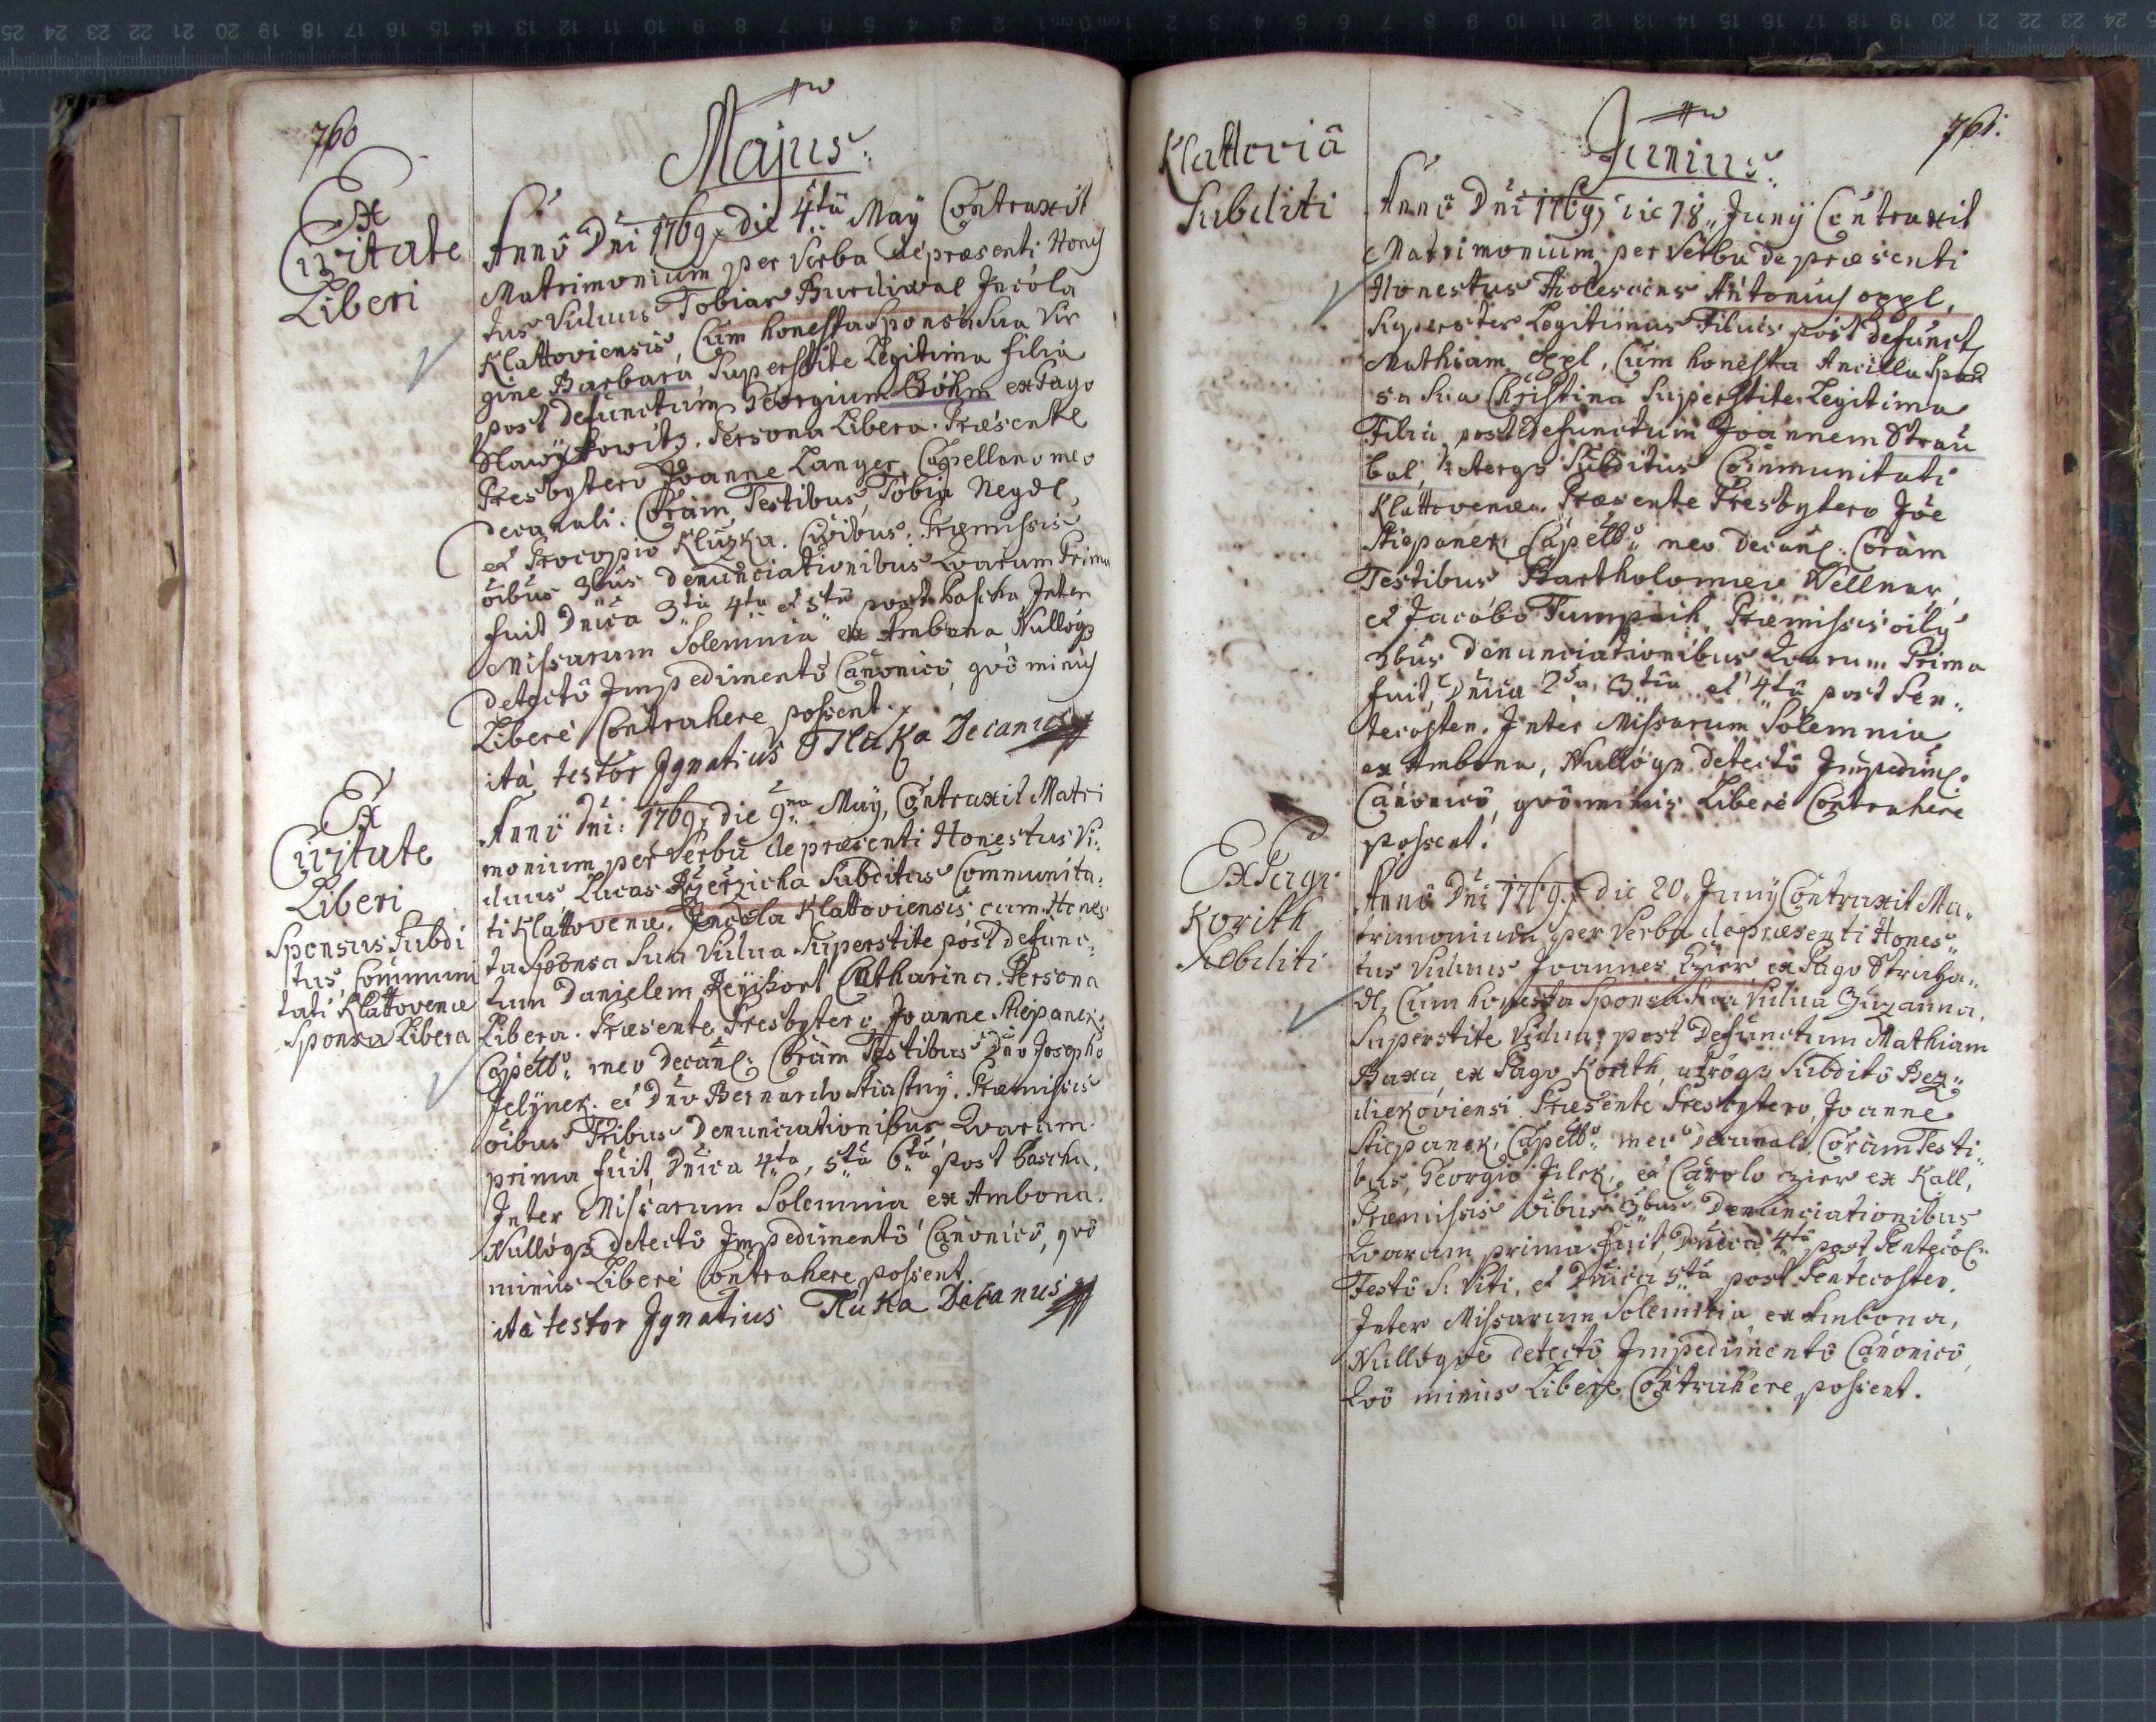 760
Majus.
Ex
Civitate
Liberi
Annô Dni 1769, die 4tâ Maÿ Contraxit
Matrimonium per Verba de præsenti Hones
tus Viduus Tobias Burdiwal Jncola
Klattoviensis, Cum honesta Sponsa Sua Vir
gine Barbara Superstite Legitima filia
post defunctum Georgium Böhm ex Pago
Persona Libera. Præsente
Presbytero Joanne Langer, Capellano meo
decanali. Coram Testibus, Tobia Neydl,
et Procopio Kluzka. Civibus. Præmissis
oibus 3bus denunciationibus Quarum Prima
fuit Dnica 3tia 4ta et 5ta post Pascha Inter
Missarum Solemnia ex Ambona Nullóqз
detectô Jmpedimentô Canonicô, quô minus
Liberè Contrahere possent.
ità testor Jgnatius Tluka Decanus
Ex
Civitate
Liberi
Sponsus Subdi
tus, Communi
tati Klattovenæ
Sponsa Libera
Annô Dni: 1769, die 9na Maÿ, Contraxit Matri
monium per Verba de præsenti Honestus Vi:
duus, Lucas Ržeržicha Subditus Communita:
ti Klattovenæ. Jncola Klattoviensis, cum Hones
ta Sponsa Sua Vidua Superstite post defunc:
tum Danielem Reyihort Catharina. Persona
Libera. Præsente Presbytero Joanne Stiepanek,
Capellô: meo Decanl: Coràm Testibus Dno Josepho
Jelÿnek. et Dno Bernardo Stiastný. Præmissis
oibus Tribus Denunciationibus Quarum
prima fuit, Dnica 4ta, 5ta 6ta post Pascha,
Jnter Missarum Solemnia ex Ambona.
Nullóqз detectô Jmpedimentô Canonicô, quô
minus Liberè Contrahere possent
ità testor Jgnatius Tluka Decanus
761.
Junius.
Klattoviâ
Subditi
Annô Dni 1769, die 18 Junÿ Contraxit
Matrimonium per Verba de præsenti
Honestus Adolescens Antonius oppl,
Superstes Legitimus Filius post defunct
Mathiam oppl, Cum honesta Ancilla Spon
sa Sua Christina Superstite Legitima
Filia post Defunctum Joannem Strau
bal, Subditus Communitati
Klattovenæ. Præsente Presbytero Joe
Stiepanek Capellô: meo Decanl: Coràm
Testibus Bartholomeo Wellner,
et Jacobo Tumpach, Præmissis oibus
3bus Denunciationibus Quarum Prima
fuit, Dnica 2da, 3tia et 4ta post Pen:
tecosten. Jnter Missarum Solemnia
ex Ambona, Nullóqз detectô Jmpedim:
Canonicô, quô minus Liberè Contrahere
possent.
Ex Pago
Korith
Subditi
Annô Dni 1769, die 20 Junÿ Contraxit Ma:
trimonium per Verba de præsenti Hones:
tus Viduus Joannes Ezier ex Pago Struha:
dl, Cum honesta Sponsa Sua Vidua Zuzanna,
Superstite Vidua post Defunctum Mathiam
Baxa, ex Pago Korith, utrôqз Subditô Bez:
diekoviensi. Præsente Presbytero, Joanne
Stiepanek, Capellô: meo Decanali. Coràm Testi:
bus, Georgio Jilek, et Carolo Ezier ex Kall,
Præmissis oibus 3bus Denunciationibus
Quarum prima fuit, Dnica 4ta post Pentecos:
Festô S: Viti, et Dnica 5ta post Pentecosten.
Jnter Missarum Solemnia, ex Ambona,
Nullóque detectô Jmpedimentô Canonicô,
Quô minus Liberè Contrahere possent.